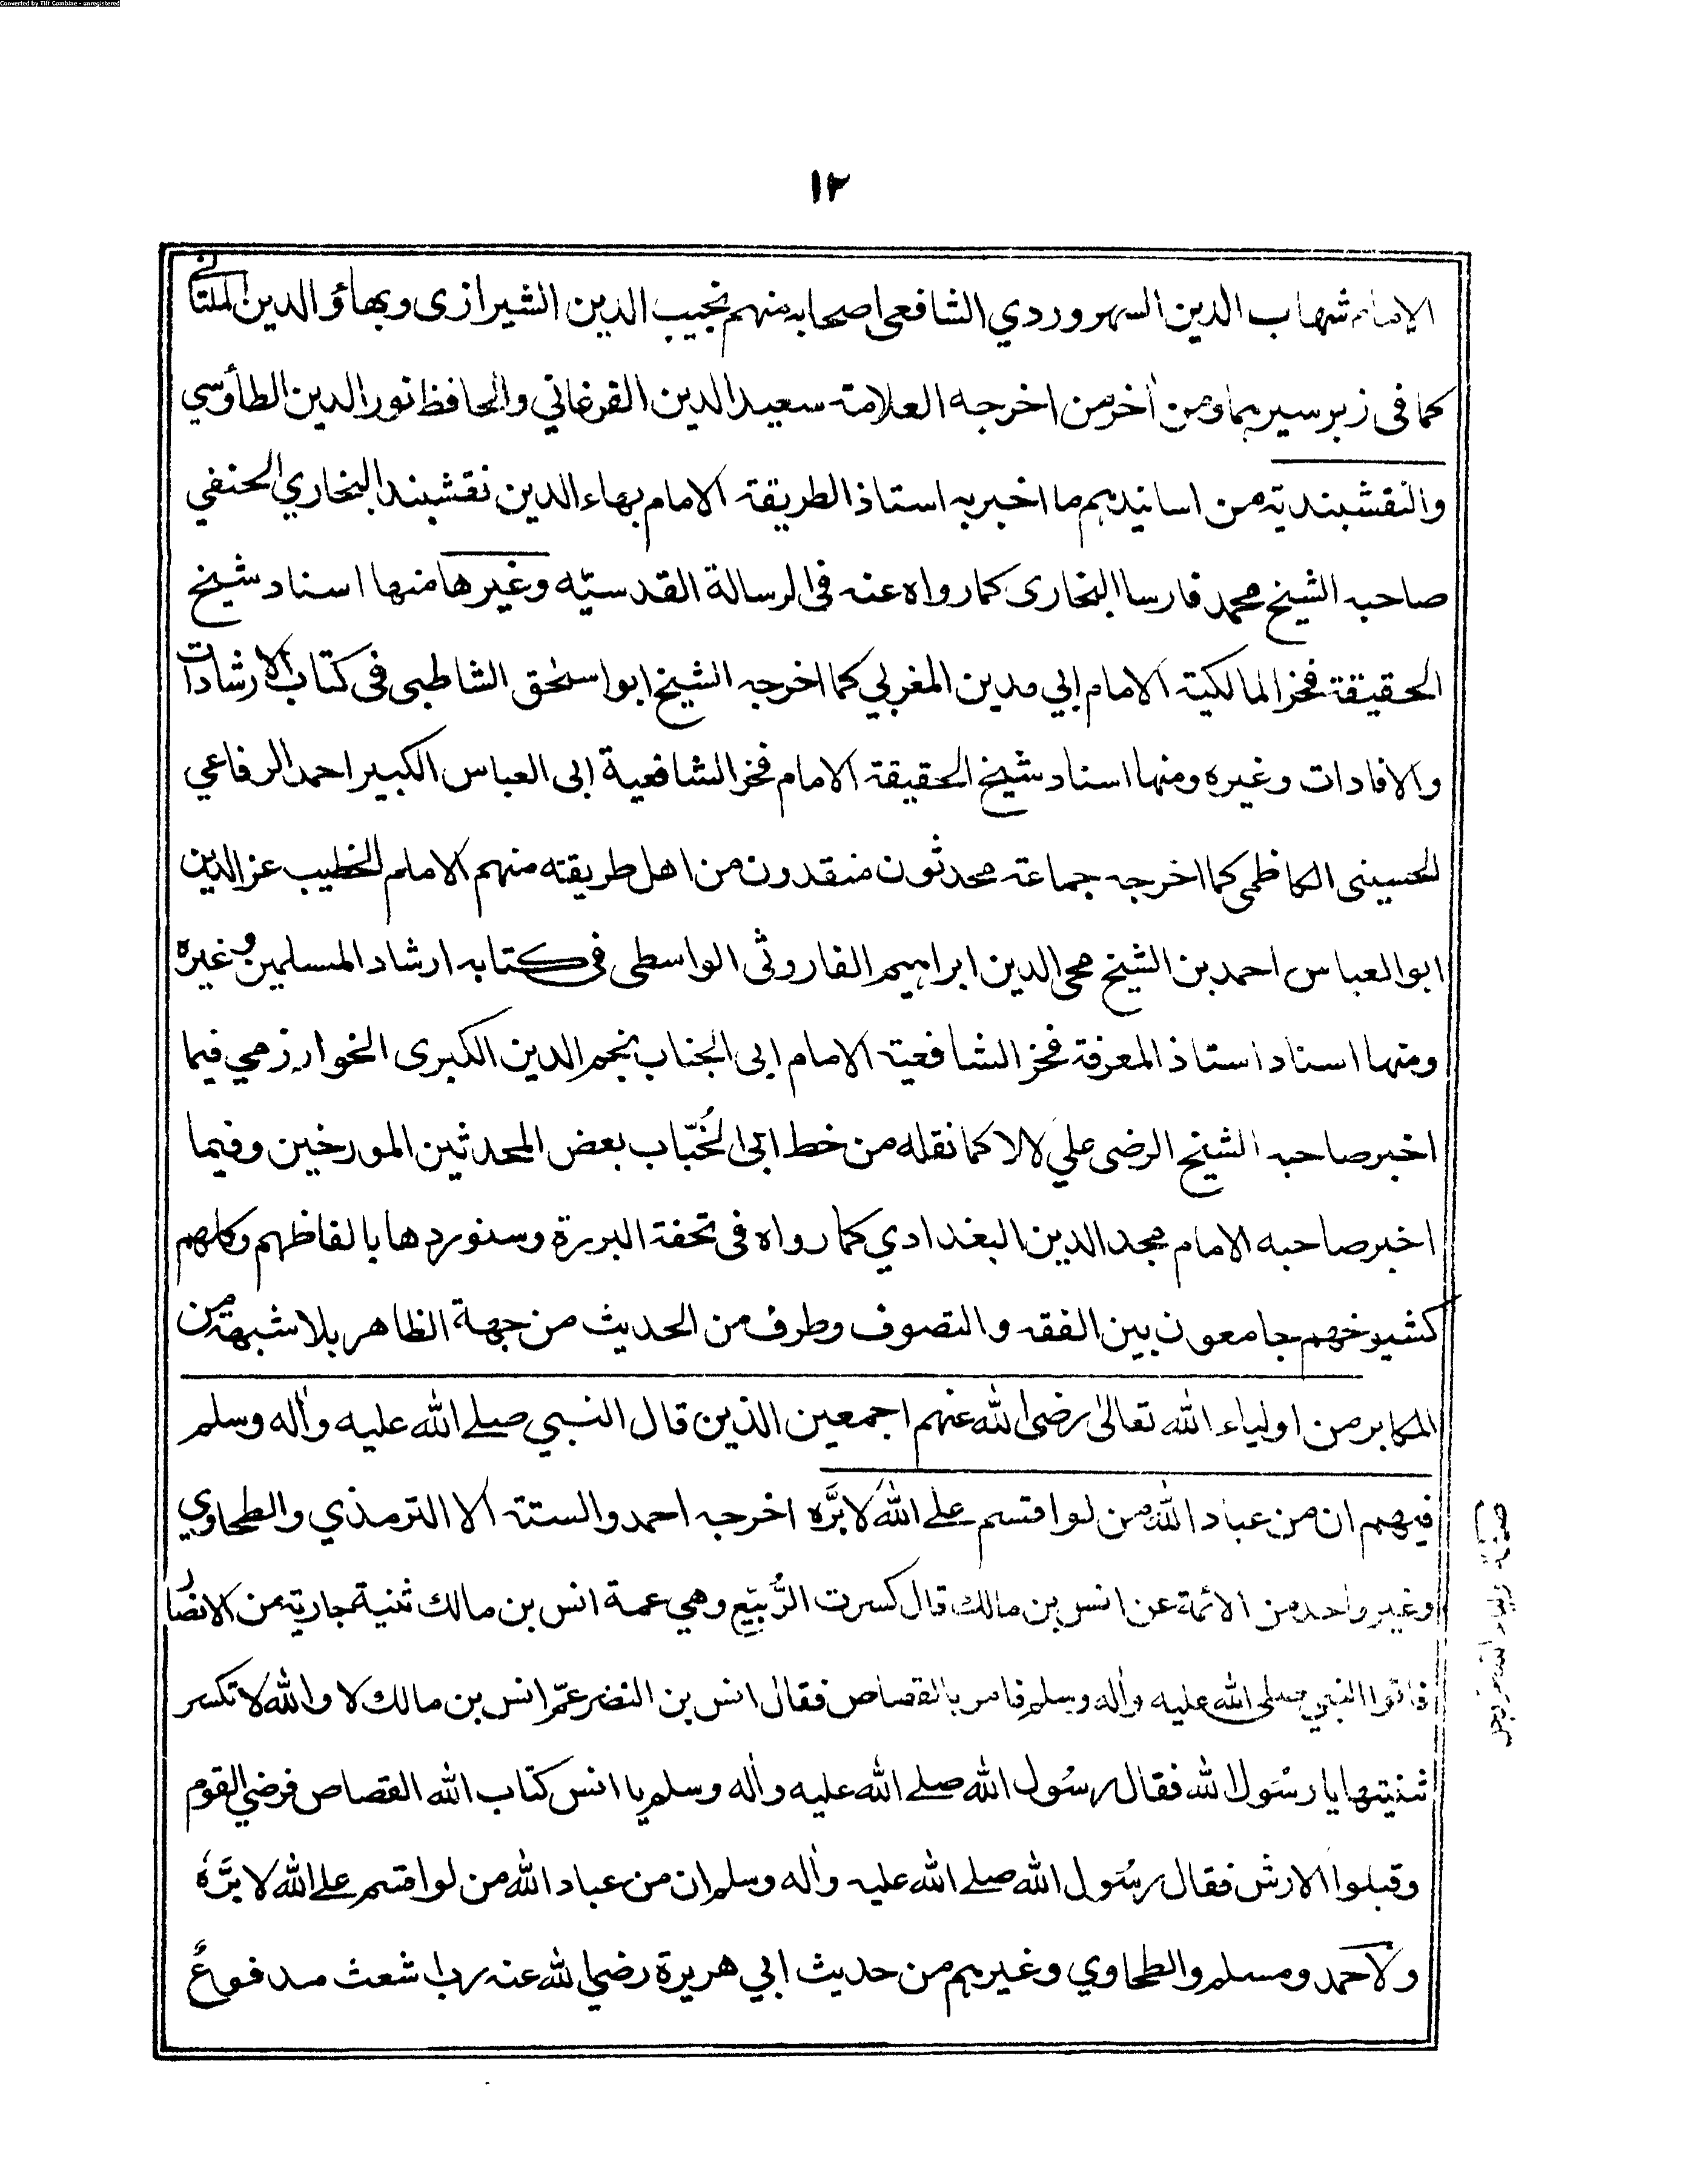 Converted by Tiff Combine - unregistered
١٢
الامام شهاب الدين السهروردي الشافعى اصحابه منهم نجيب الدين الشيرازى وبهاؤ الدين الملتانى
كما فى زبر سيرهما ومن اٰخر من اخرجه العلامة سعيد الدين الفرغانى والحافظ نور الدين الطاؤسي
والنقشبندية من اسانيدهم ما اخبر به استاذ الطريقة الامام بهاء الدين نقشبند البخاري الحنفي
صاحبه الشيخ محمد فارسا البخارى كما رواه عنه فى الرسالة القدسيّه وغيرها منها اسناد شيخ
الحقيقة فخر المالكية الامام ابي مدين المغربي كما اخرجه الشيخ ابو اسحٰق الشاطبى فى كتاب الارشادات
والافادات وغيره ومنها اسناد شيخ الحقيقة الامام فخر الشافعية ابى العباس الكبير احمد الرفاعي
الحسينى الكاظمى كما اخرجه جماعة محدثون منقدون من اهل طريقته منهم الامام الخطيب عز الدين
ابو العباس احمد بن الشيخ محى الدين ابراهيم الفاروثى الواسطى فى كتابه ارشاد المسلمين وغيره
ومنها اسناد استاذ المعرفة فخر الشافعية الامام ابى الجناب نجم الدين الكبرى الخوارزمي فيما
اخبر صاحبه الشيخ الرضى علي لالا كما نقله من خط ابى الخُبّاب بعض المحدثين المورخين وفيما
اخبر صاحبه الامام مجد الدين البغدادي كما رواه فى تحفة البررة وسنوردها بالفاظهم وكلهم
كشيوخهم جامعون بين الفقه والتصوف وطرف من الحديث من جهة الظاهر بلا شبهة من
المكابر من اولياء الله تعالىٰ رضى الله عنهم اجمعين الذين قال النبي صلے الله عليه واٰله وسلم
فيهم ان من عباد الله من لو اقتسم علے الله لابرَّه اخرجه احمد والستة الا الترمذي والطحاوي
وغير واحد من الائمة عن انس بن مالك قال كسرت الرُّبيّع وهي عمة انس بن مالك ثنية جارية من الانصار
فاتوا النبي صلى الله عليه واٰله وسلم فامر بالقصاص فقال انس بن النضر عمّ انس بن مالك لا والله لا تكسر
ثنيتها يا رسُول الله فقال رسُول الله صلے الله عليه واٰله وسلم يا انس كتاب الله القصاص فرضي القوم
وقبلوا الارش فقال رسُول الله صلے الله عليه واٰله وسلم ان من عباد الله من لو اقتسم علے الله لابرَّهٗ
ولاحمد ومسلم والطحاوي وغيرهم من حديث ابي هريرة رضي الله عنه رب اشعث مدفوعٌ